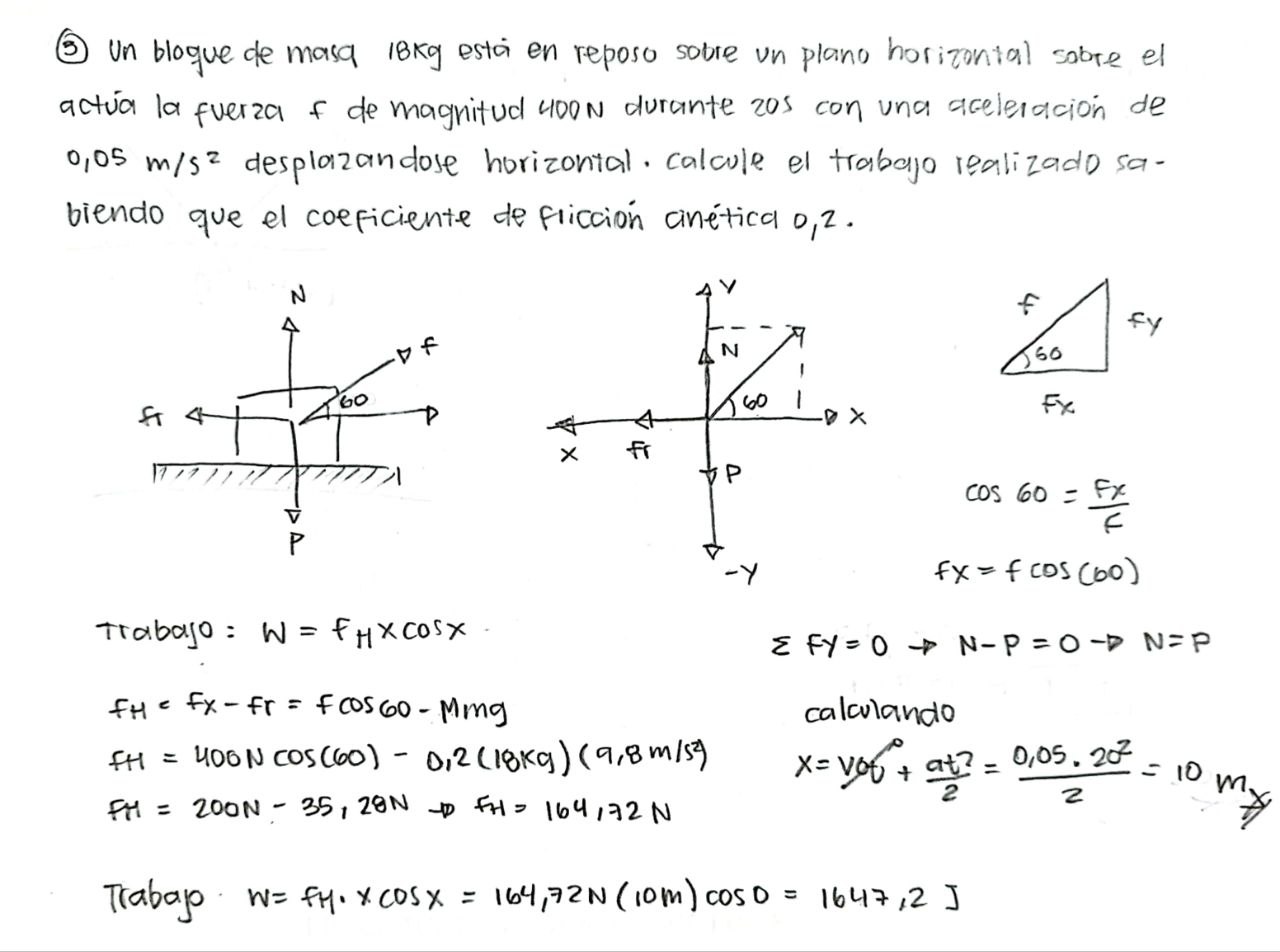 ⑤ Un bloque de masa 18Kg está en reposo sobre un plano horizontal sobre el
actúa la fuerza f de magnitud 400N durante 20s con una aceleración de
0,05 m/s² desplazandose horizontal. calcule el trabajo realizado sa-
biendo que el coeficiente de fricción cinética 0,2.
N
f
60
fr
P
Y
N
60
X
X
fr
P
-Y
f
fy
60
Fx
cos 60 = Fx/F
fx = f cos(60)
Trabajo: W = fH x cosx
Σ FY = 0 → N-P = 0 → N=P
fH = fx - fr = f cos 60 - Mmg
calculando
fH = 400N cos(60) - 0,2(18Kg)(9,8 m/s²)
X = Vot⁰ + at²/2 = 0,05.20²/2 = 10 m
fH = 200N - 35,28N → fH = 164,72 N
Trabajo W= fH. x cosx = 164,72N (10m) cos 0 = 1647,2 J